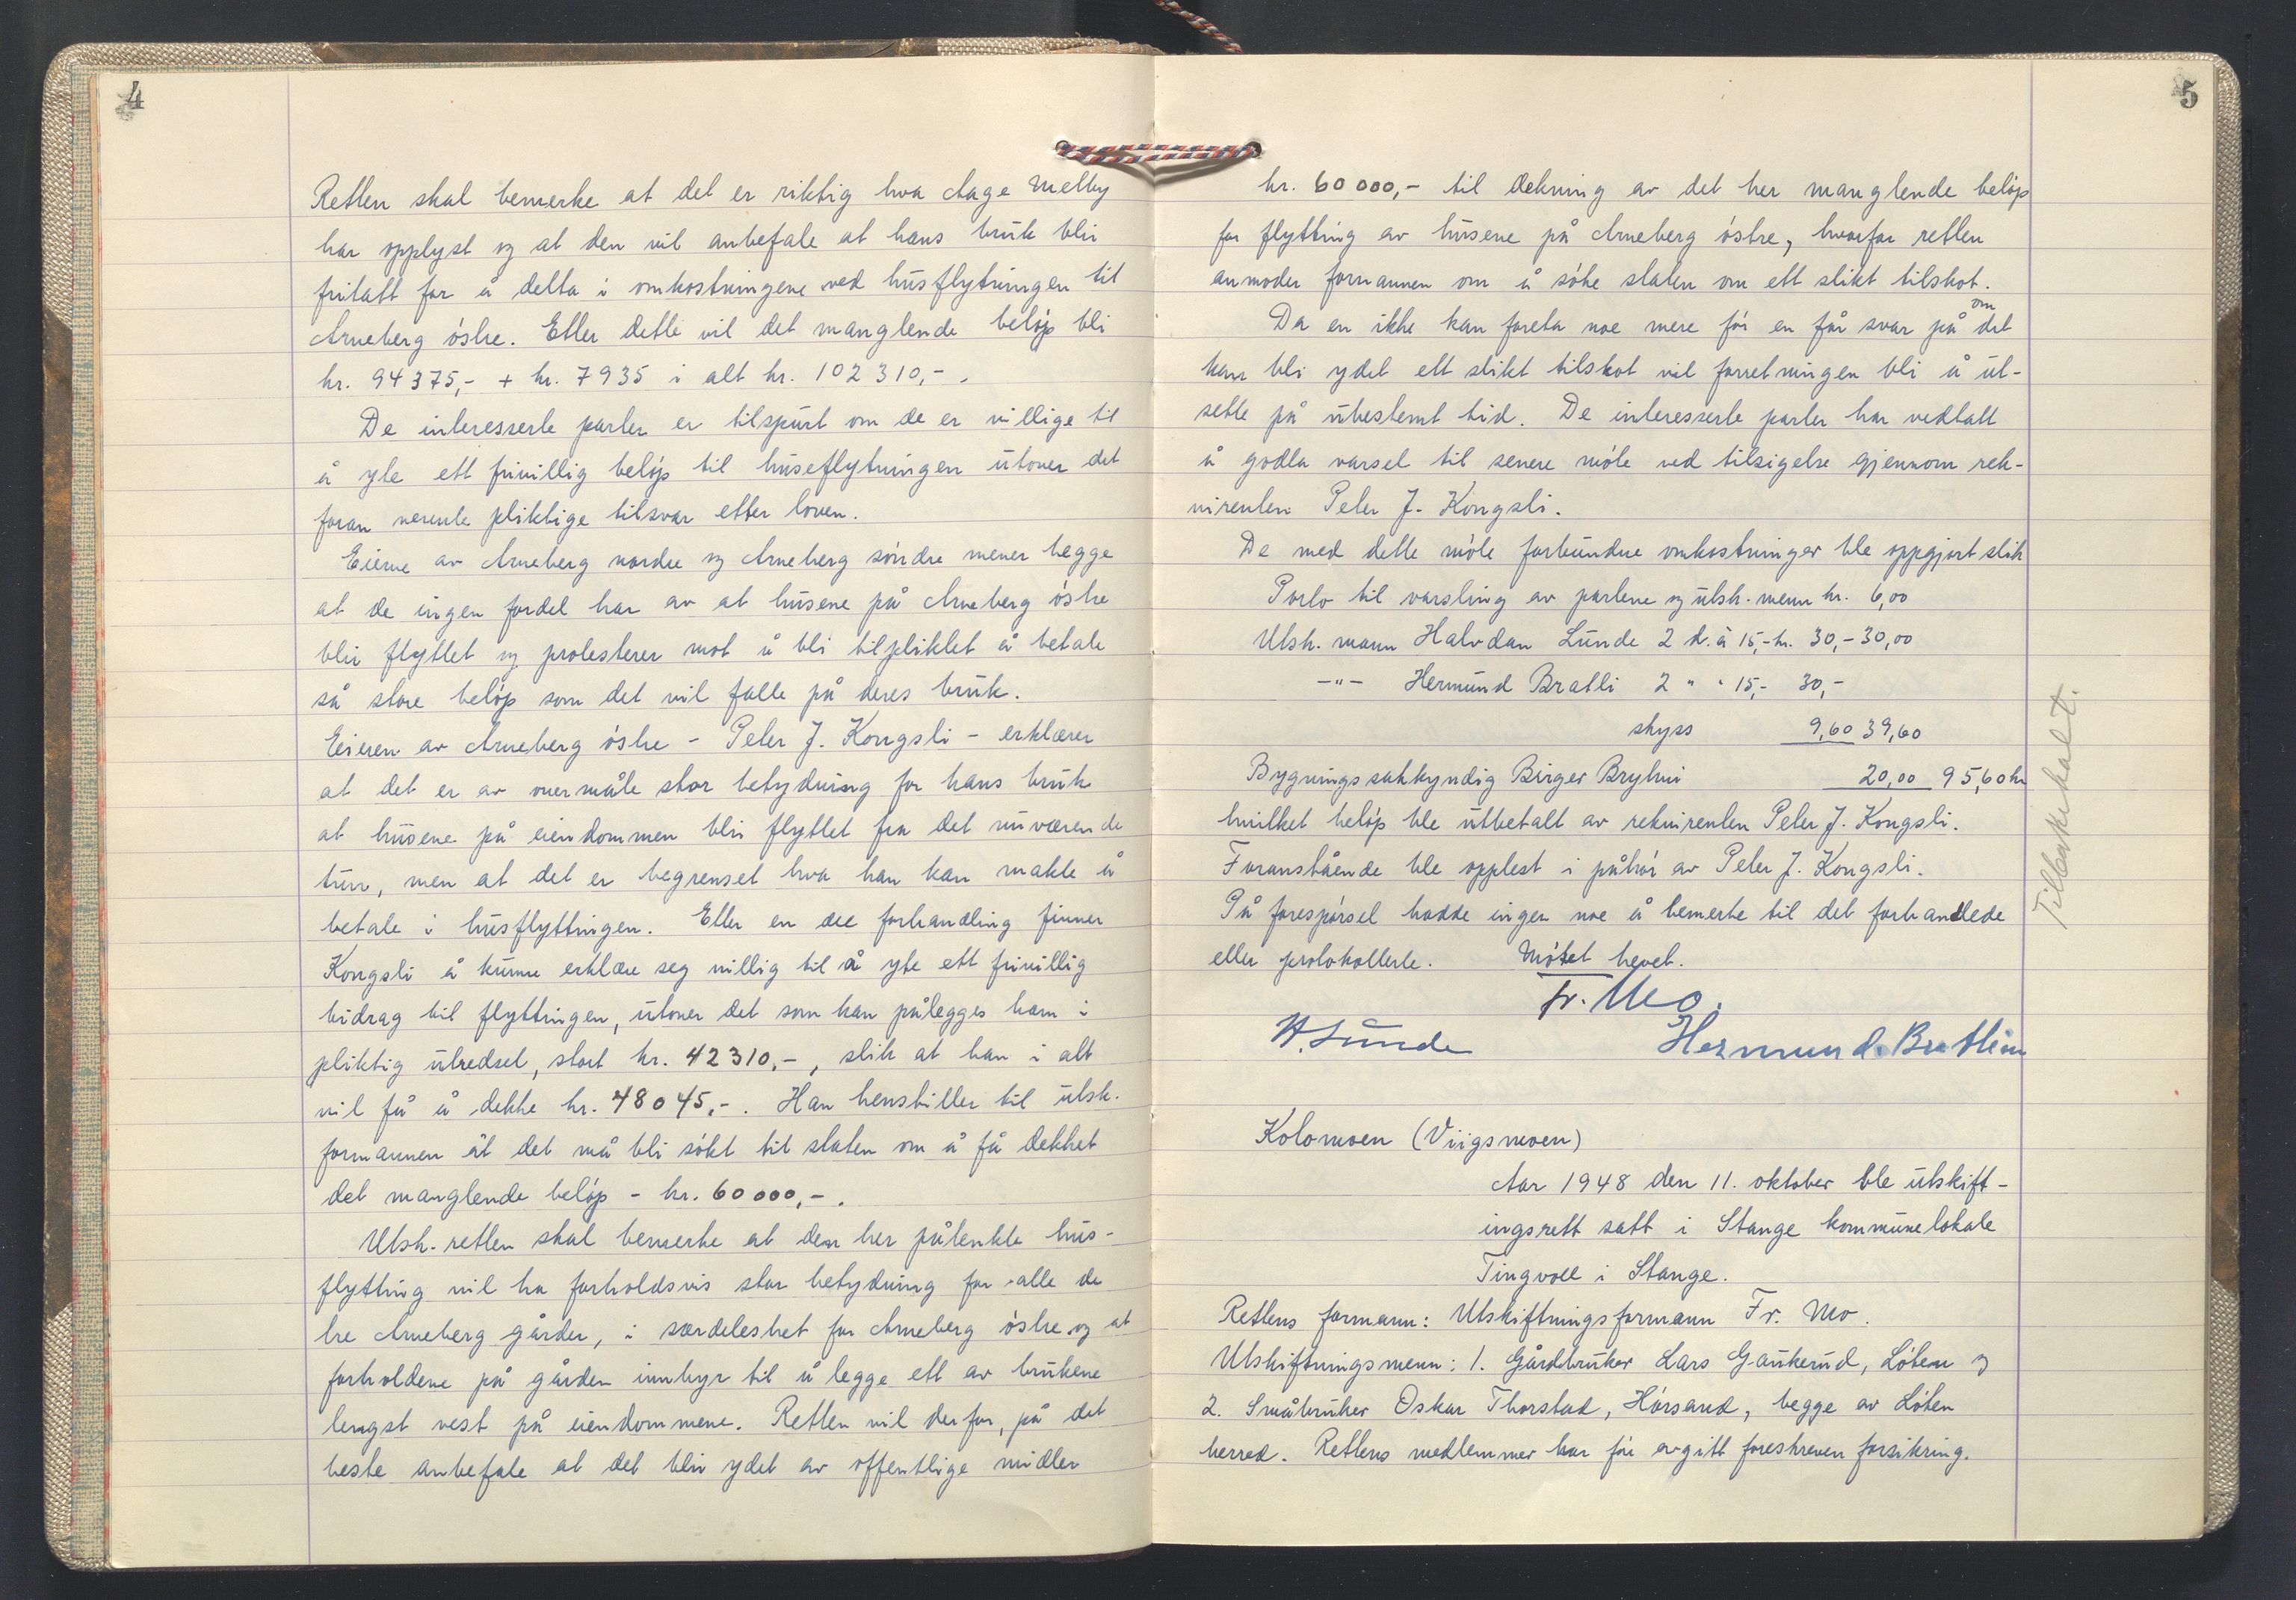 4
Retten skal bemerke at det er riktig hva Aage Melby
har opplyst og at den vil anbefale at hans bruk blir
fritatt for å delta i omkostningene ved husflytningen til
Arneberg østre. Etter dette vil det manglende beløp bli
kr. 94375,- + kr. 7935 i alt kr. 102310,-.
De interesserte parter er tilspurt om de er villige til
å yte ett frivillig beløp til huseflytningen utover det
foran nevente pliktige tilsvar etter loven.
Eierne av Arneberg nordre og Arneberg søndre mener begge
at de ingen fordel har av at husene på Arneberg østre
blir flyttet og protesterer mot å bli tilpliktet å betale
så store beløp som det vil falle på deres bruk.
Eieren av Arneberg østre - Peter J. Kongsli - erklærer
at det er av overmåte stor betydning for hans bruk
at husene på eiendommen blir flyttet fra det nuværende
tun, men at det er begrenset hva han kan makte å
betale i husflyttingen. Etter en del forhandling finner
Kongsli å kunne erklære seg villig til å yte ett frivillig
bidrag til flyttingen, utover det som kan pålegges ham i
pliktig utredsel, stort kr. 42310,-, slik at han i alt
vil få å dekke kr. 48045,-. Han henstiller til utsk.
formannen at det må bli søkt til staten om å få dekket
det manglende beløp - kr. 60000,-.
Utsk. retten skal bemerke at den her påtenkte hus-
flytting vil ha forholdsvis stor betydning for alle de
tre Arneberg gårder, i særdeleshet for Arneberg østre og at
forholdene på gården innbyr til å legge ett av brukene
lengst vest på eiendommene. Retten vil derfor, på det
beste anbefale at det blir ydet av offentlige midler
5
kr. 60000,- til dekning av det her manglende beløp
for flytting av husene på Arneberg østre, hvorfor retten
anmoder formannen om å søke staten om ett slikt tilskot.
Da en ikke kan foreta noe mere før en får svar på om det
kan bli ydet ett slikt tilskot vil forretningen bli å ut-
sette på ubestemt tid. De interesserte parter har vedtatt
å godta varsel til senere møte ved tilsigelse gjennom rek-
virenten Peter J. Kongsli.
De med dette møte forbundne omkostninger ble oppgjort slik
Porto til varsling av partene og utsk. menn kr. 6,00
Utsk. mann Halvdan Lunde 2 d. à 15,- kr. 30,- 30,00
-"- Hermund Bratli 2 " " 15,- 30,-
skyss 9,60 39,60
Bygningssakkyndig Birger Bryhni 20,00 95,60 kr
hvilket beløp ble utbetalt av rekvirenten Peter J. Kongsli.
Foranstående ble opplest i påhør av Peter J. Kongsli.
På forespørsel hadde ingen noe å bemerke til det forhandlede
eller protokollerte. Møtet hevet.
Fr. Mo.
H. Lunde Hermund Bratlien
Tilbakekalt.
Kolomoen (Viigsmoen)
Aar 1948 den 11. oktober ble utskift-
ingsrett satt i Stange kommunelokale
Tingvoll i Stange.
Rettens formann: Utskiftningsformann Fr. Mo.
Utskiftningsmenn: 1. Gårdbruker Lars Gaukerud, Løten og
2. Småbruker Oskar Thorstad, Hørsand, begge av Løten
herred. Rettens medlemmer har før avgitt foreskreven forsikring.